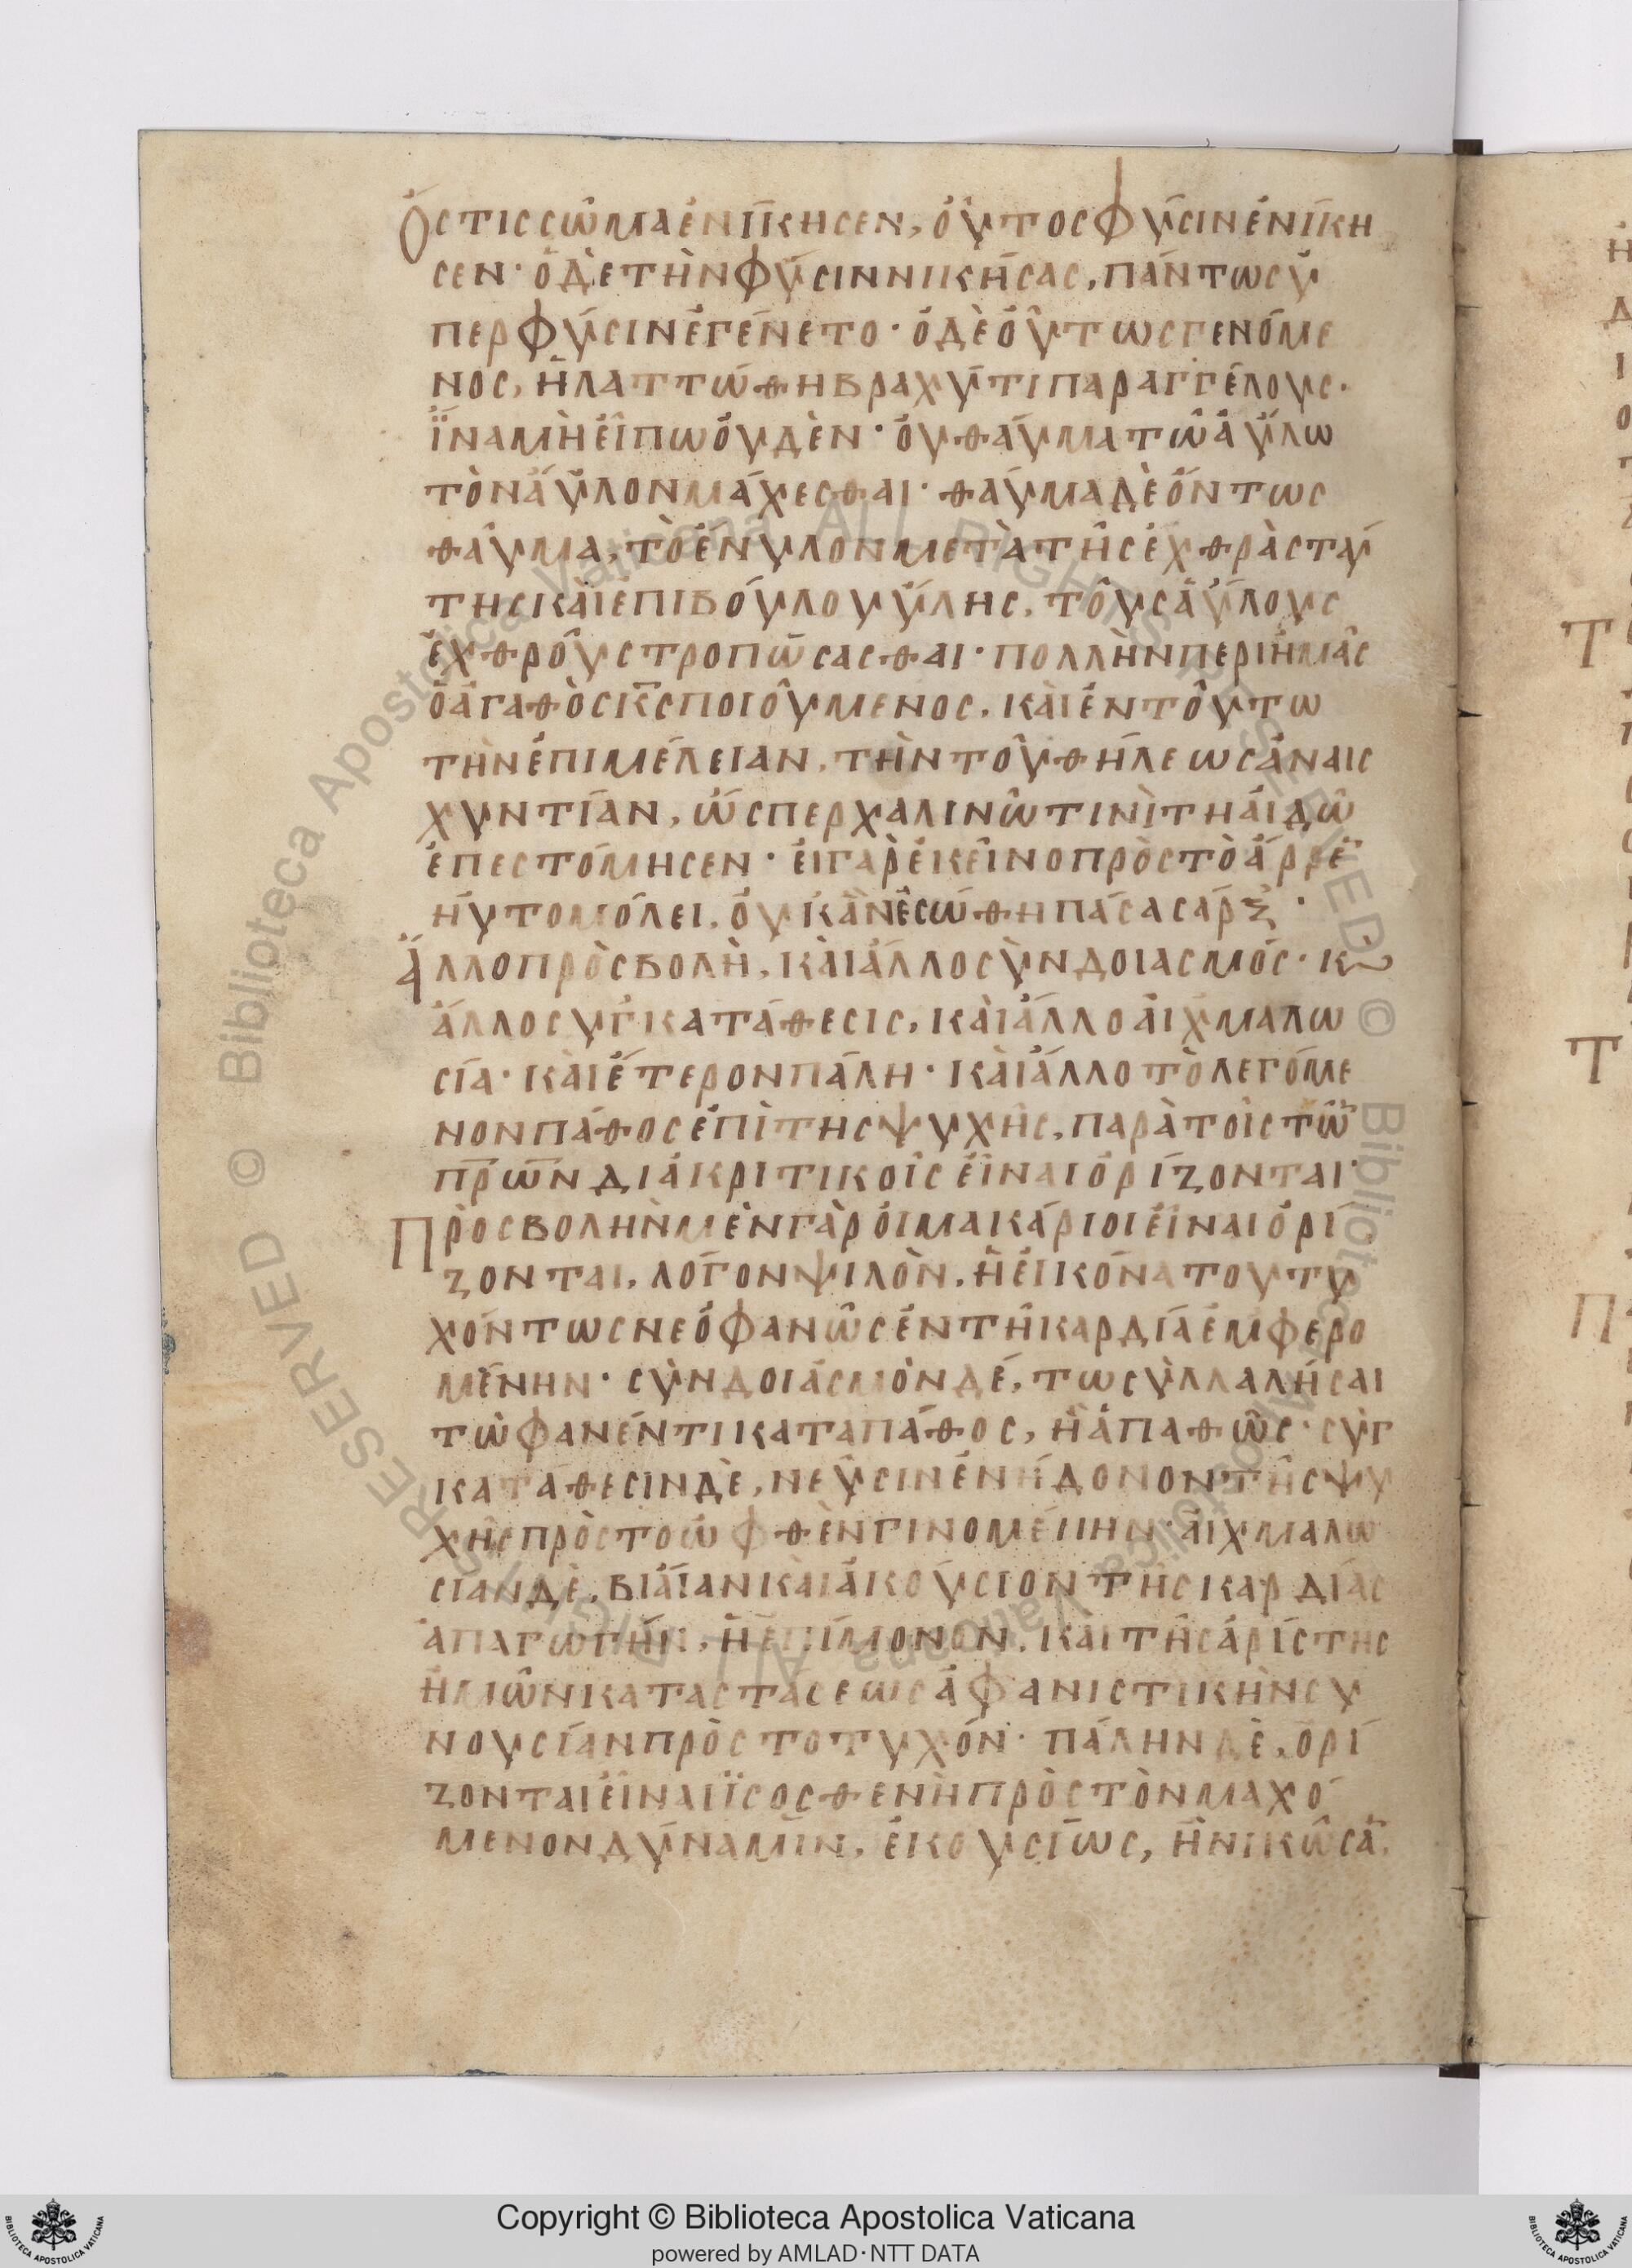 Ὅστις σῶμα ἐνίκησεν, οὗτος φύσιν ἐνίκη
σεν· ὁ δὲ τὴν φύσιν νικήσας, πάντως ὑ
πὲρ φύσιν ἐγένετο· ὁ δὲ οὕτως γενόμε
νος, ἠλαττώθη βραχύ τι παρ αγγέλους·
ἵνα μὴ εἴπω οὐδὲν· οὐ θαῦμα τῶ ἀΰλω
τὸν ἄϋλον μάχεσθαι· θαῦμα δὲ ὄντως
θαῦμα, τὸ ἔνυλον μετὰ τῆς ἐχθρὰς ταύ
της καὶ ἐπιβούλου ὕλης, τοὺς ἀΰλους
ἐχθροὺς τροπώσασθαι· πολλὴν περὶ ἡμᾶς
ὁ ἀγαθὸς κς ποιούμενος, καὶ ἐν τούτω
τὴν ἐπιμέλειαν, τὴν τοῦ θήλεως ἀναισ
χυντίαν, ὥσπερ χαλινῶ τινὶ τῆ αἰδῶ
ἐπεστόμησεν· εἰ γὰρ ἐκεῖνο πρὸς τὸ ἄρρε
ηὐτομόλει, οὐκ ἂν ἐσώθη πᾶσα σάρξ·
Ἄλλο πρὸσβολὴ, καὶ ἄλλο σὺνδοιασμός· κ
ἄλλο συγκατάθεσις, καὶ ἄλλο αἰχμαλω
σία· καὶ ἕτερον πάλη· καὶ ἄλλο τὸ λεγόμε
νον πάθος ἐπὶ της ψυχῆς, παρὰ τοῖς τῶ
πρων διάκριτικοῖς εἶναι ὁρίζονται·
Πρὸσβολὴν μὲν γὰρ οἱ μακάριοι εἶναι ὁρί
ζονται, λόγον ψιλὸν, ἢ εἰκόνα του τυ
χόντως νεόφανῶς ἐν τῆ καρδία ἐμφερο
μένην· σὺνδοιάσμὸν δέ, τω σὺλλαλήσαι
τῶ φανέντι κατα πάθος, ἢ ἀπαθῶς· σὺγ
κατάθεσιν δὲ, νεῦσιν ἐνήδονον τῆς ψυ
χῆς πρὸς το ὠφθὲν γινομένην· αἰχμαλω
σίαν δὲ, βιάϊαν καὶ ἀκούσιον τῆς καρδίας
ἀπαγωγήν, ἢ ἐπίμονον, και τῆς ἀρίστης
ἡμῶν καταστάσεως ἀφανιστικὴν συ
νουσίαν πρὸς το τυχόν· πάλην δὲ, ὁρί
ζονται εἶναι ἴσοσθενὴ πρὸς τὸν μαχό
μενον δύναμιν, ἑκουσίως, ἢ νικῶσα